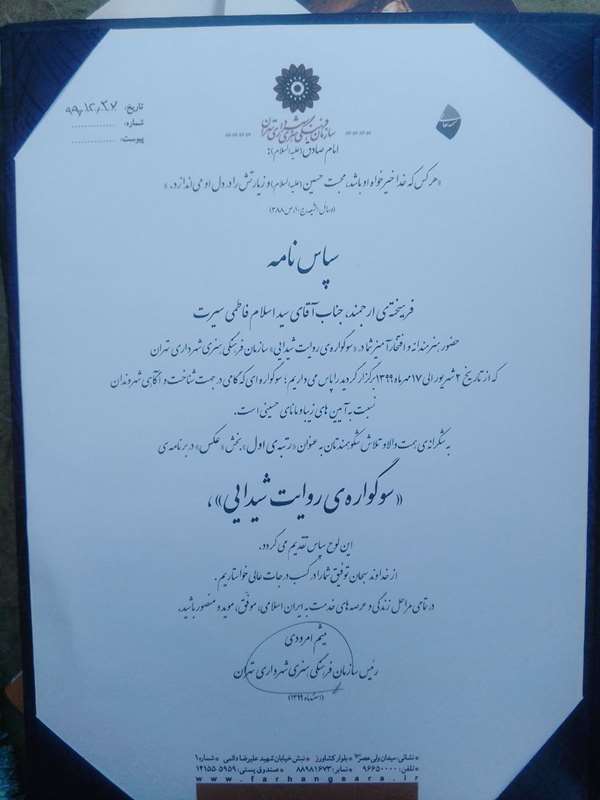 سازمان فرهنگی هنری شهرداری تهران
تاریخ: ۹۹,۱۲,۲۷
شماره: ..............
پیوست: ..............
امام صادق (علیه‌السلام):
«هر کس که خدا خیرخواه او باشد، محبت حسین (علیه‌السلام) و زیارتش را در دل او می‌اندازد.»
سپاس نامه
فرهیخته‌ی ارجمند، جناب آقای سید اسلام فاطمی سیرت
حضور هنرمندانه و افتخارآمیز شما در «سوگواره‌ی روایت شیدایی» سازمان فرهنگی هنری شهرداری تهران
که از تاریخ ۲ شهریور الی ۱۷ مهرماه ۱۳۹۹ برگزار گردید را پاس می‌داریم؛ سوگواره‌ای که گامی در جهت شناخت و آگاهی شهروندان
نسبت به آیین های زیبا و مانای حسینی است.
به شکرانه‌ی همت والا و تلاش شکوهمندتان به عنوان «رتبه‌ی اول»، بخش «عکس» در برنامه‌ی
«سوگواره‌ی روایت شیدایی»،
این لوح سپاس تقدیم می گردد.
از خداوند سبحان توفیق شما را در کسب درجات عالی خواستاریم.
در تمامی مراحل زندگی و عرصه های خدمت به ایران اسلامی، موفق، موید و منصور باشید.
میثم امرودی
رئیس سازمان فرهنگی هنری شهرداری تهران
اسفندماه ۱۳۹۹
نشانی: میدان ولی عصر(عج) * بلوار کشاورز * نبش خیابان شهید علیرضا دائمی * شماره ۱
تلفن: ۹۶۶۵۰۰۰۰ * نمابر: ۸۸۹۸۱۶۷۳ * صندوق پستی: ۵۹۵۹-۱۴۱۵۵
www.farhangsara.ir